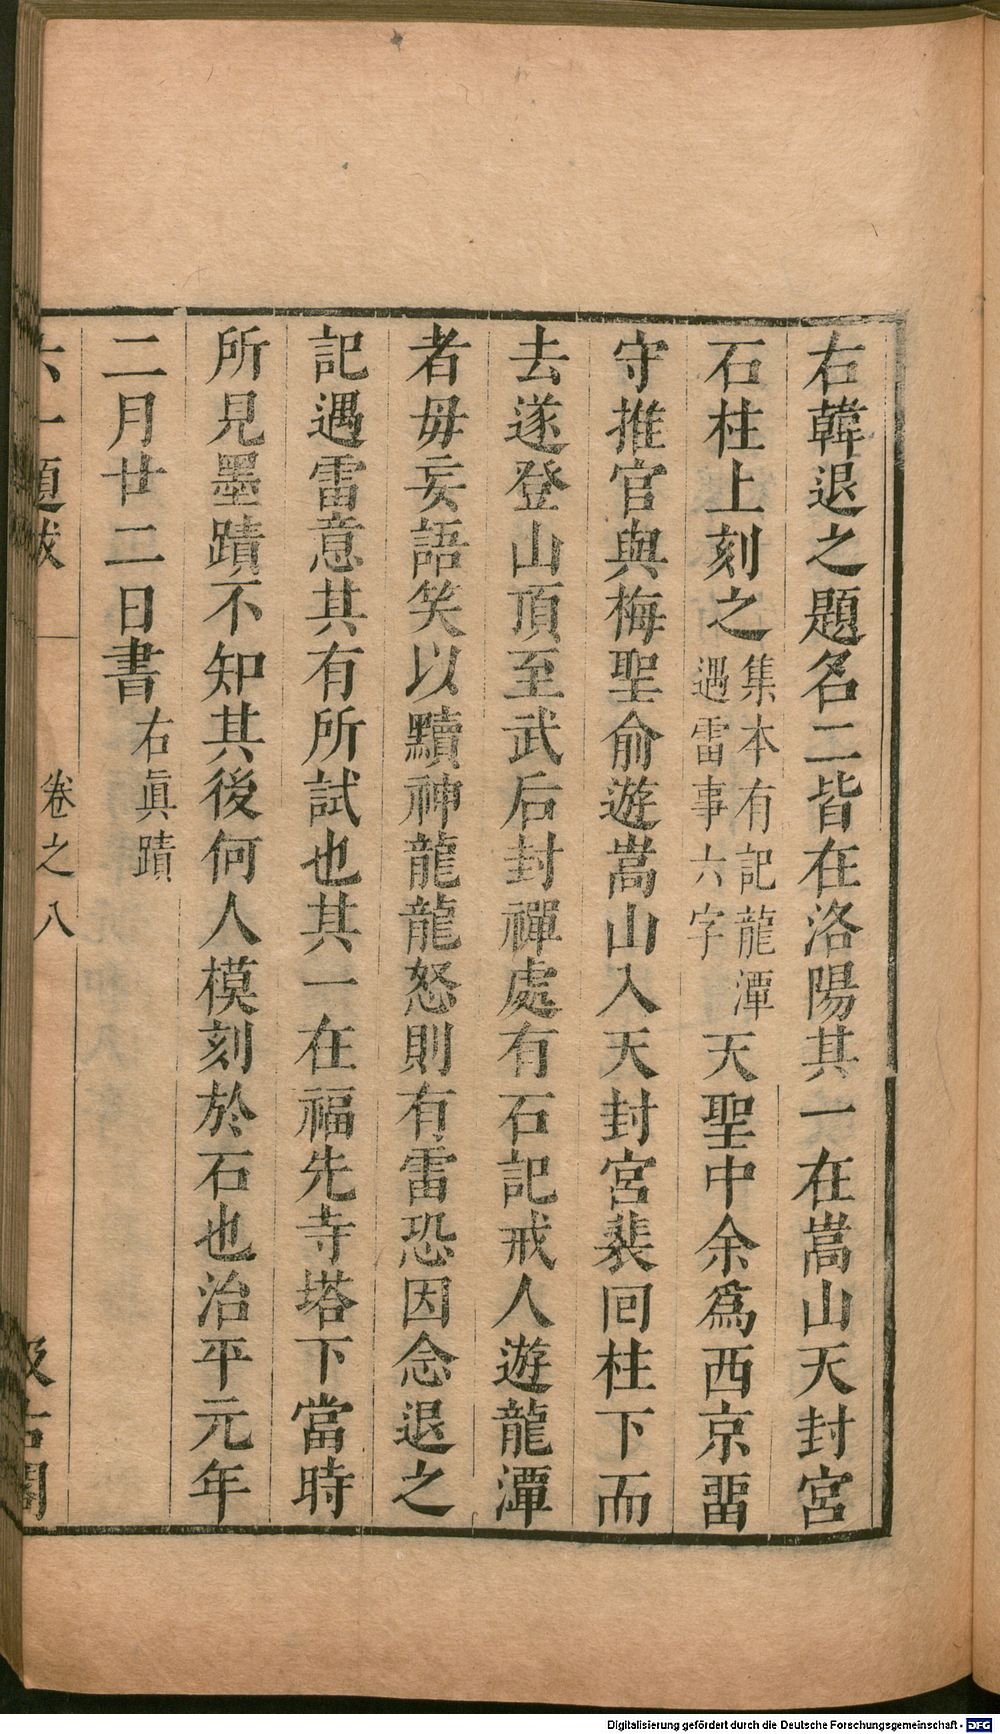 右韓退之題名二皆在洛陽其一在嵩山天封宮
石柱上刻之集本有記龍潭遇雷事六字天聖中余爲西京畱
守推官與梅聖俞遊嵩山入天封宮裴囘柱下而
去遂登山頂至武后封禪處有石記戒人遊龍潭
者毋妄語笑以黷神龍龍怒則有雷恐因念退之
記遇雷意其有所試也其一在福先寺塔下當時
所見墨蹟不知其後何人模刻於石也治平元年
二月廿二日書右眞蹟
六一題跋
卷之八
汲古閣
Digitalisierung gefördert durch die Deutsche Forschungsgemeinschaft - DFG